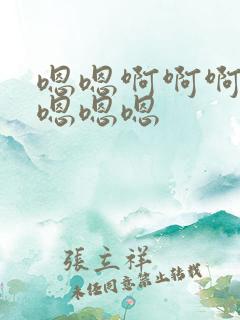 嗯嗯啊啊啊
嗯嗯嗯
張立祥
未经同意禁止转载